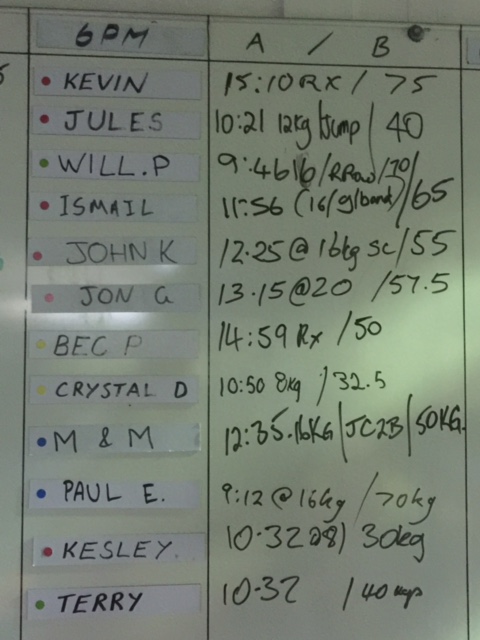 6PM A / B
KEVIN 15:10 RX / 75
JULES 10:21 12kg/Jump / 40
WILL.P 9:46 16/RRow/70
ISMAIL 11:56 (16/g/band)/65
JOHN K 12.25@16kg sc/55
JON G 13.15@20 /57.5
BEC P 14:59 Rx /50
CRYSTAL D 10:50 8kg /32.5
M & M 12:35.16KG/JC2B/50KG.
PAUL E. 9:12@16kg /70kg
KESLEY. 10.32@8) 30kg
TERRY 10.32 /40